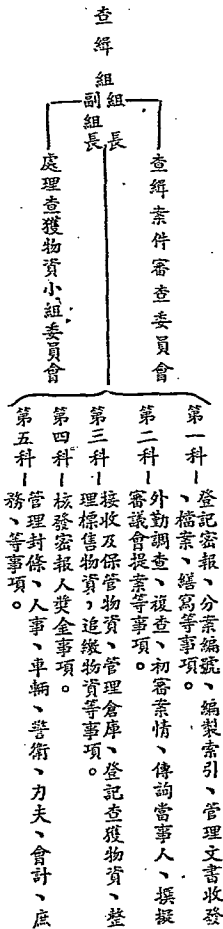 查緝組
組長
副組長
查緝案件審查委員會
處理查獲物資小組委員會
第一科—登記密報、分案編號、編製索引、管理文書收發
、檔案、繕寫等事項。
第二科—外勤調查、複查、初審案情、傳詢當事人、撰擬
審議會提案等事項。
第三科—接收及保管物資、管理倉庫、登記查獲物資、整
理標售物資，追繳物資等事項。
第四科—核發密報人獎金事項。
第五科—管理封條、人事、車輛、警衛、力夫、會計、庶
務、等事項。